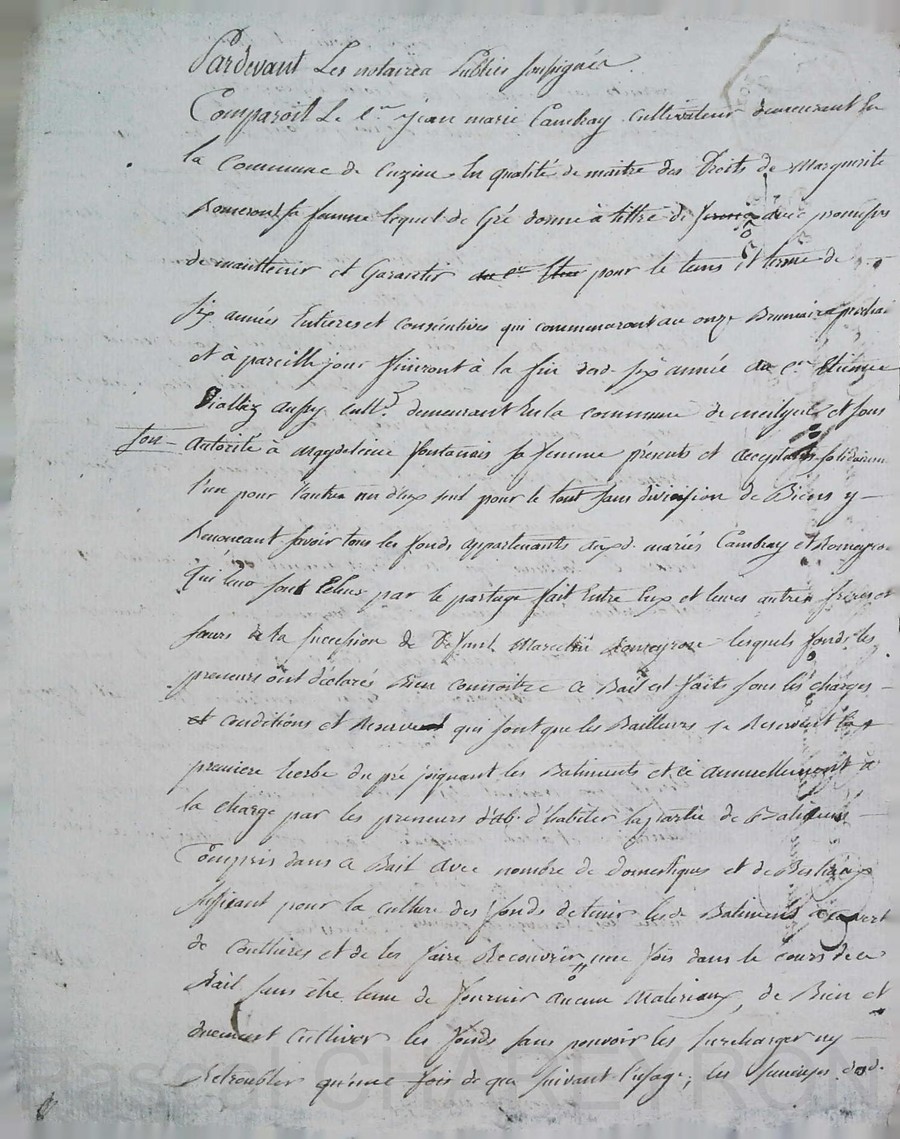 Pardevant Les notaires Publics soussignés
Comparoit Le Cen jean marie Cambray Cultivateur demeurant En
la Commune de Cuzieu En qualité de maitre des Droits de Marguerite
sa femme lequel de Gré donne à tittre de ferme avec promesse
de maintenir et Garantir pour le tems et terme de
six années Entieres et consécutives qui commenceront au onze Brumaire prochain
et à pareille jour finiront à la fin desd. six année au Cen Etienne
aussy cultr. demeurant En la commune de et sous
son autorité à magdeleine fontanais sa femme présents et acceptants solidairement
l'un pour l'autre un d'eux seul pour le tout sans division de Biens y
Renonceant savoir tous les fonds appartenants auxd. mariés Cambray et Romeyron
Qui leur sont Echus par le partage fait Entre Eux et leurs autres freres et
sœurs de la succession de Defunt Marcelin Romeyron lesquels fonds les
preneurs ont déclarés Bien connoitre Ce Bail est faits sous les charges
et conditions et Reserves qui sont que les Bailleurs se Reservent la
premiere herbe du pré joignant les Batiments et ce annuellement à
la charge par les preneurs d'ab. d'habiter la partie de Batiments
Compris dans ce Bail avec nombre de domestiques et de Bestiaux
suffisant pour la culture des fonds de tenir lesd. Batiments à couvert
de Gouttieres et de les faire Recouvrir une fois dans le cours de ce
Bail sans être tenu de fournir aucune Materiaux, de Bien et
duement Cultiver les fonds sans pouvoir les surcharger ny
Retroubler qu'une fois de que suivant l'usage; les
Pascal CHAREYRON